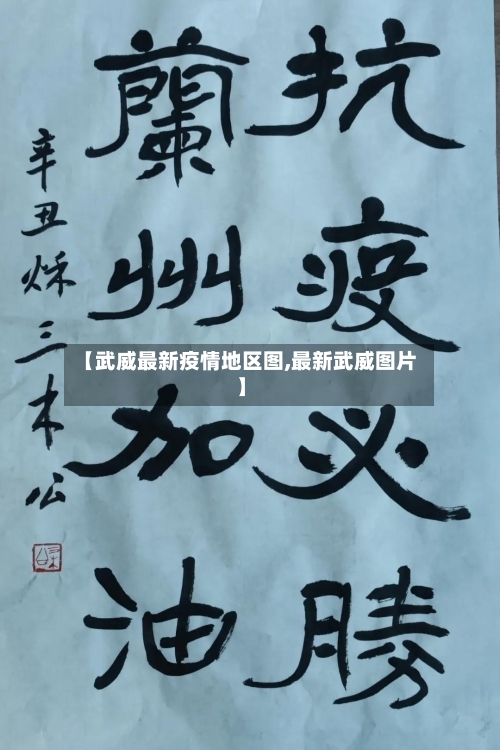 抗疫必勝
蘭州加油
辛丑秌三木公
【武威最新疫情地区图,最新武威图片
】